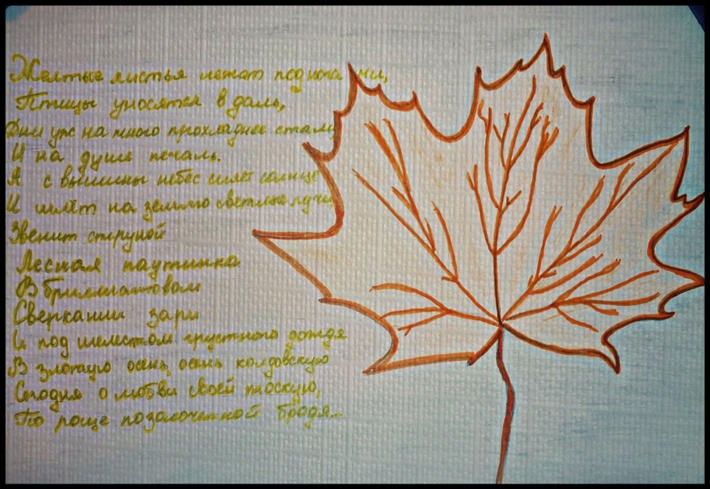 Желтые листья лежат под ногами,
Птицы уносятся в даль,
Дни уже на много прохладнее стали
И на душе печаль.
А с вышины небес сияет солнце
И шлёт на землю светлые лучи
Звенит струной
Лесная паутинка
В бриллиантовом
Сверкании зари
И под шелестом грустного дождя
В златую осень, осень колдовскую
Сегодня о любви своей тоскую,
По роще позолоченной бродя...